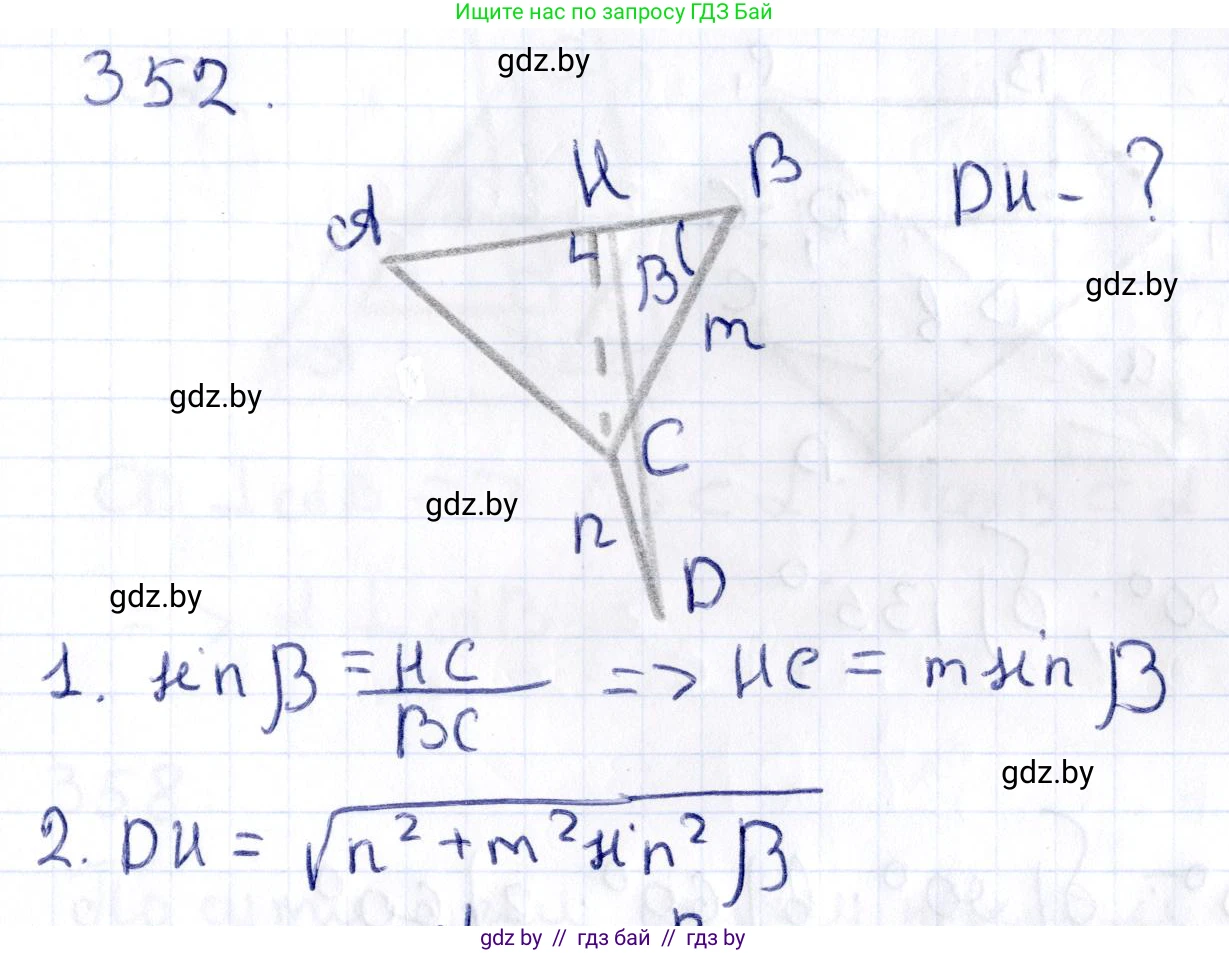 Ищите нас по запросу ГДЗ Бай
352.
gdz.by
H
B
A
DH - ?
β
gdz.by
m
gdz.by
C
gdz.by
n
D
gdz.by
1. sin β = HC / BC => HC = m sin β
gdz.by
2. DH = √(n² + m² sin² β)
gdz.by // гдз бай // гдз by